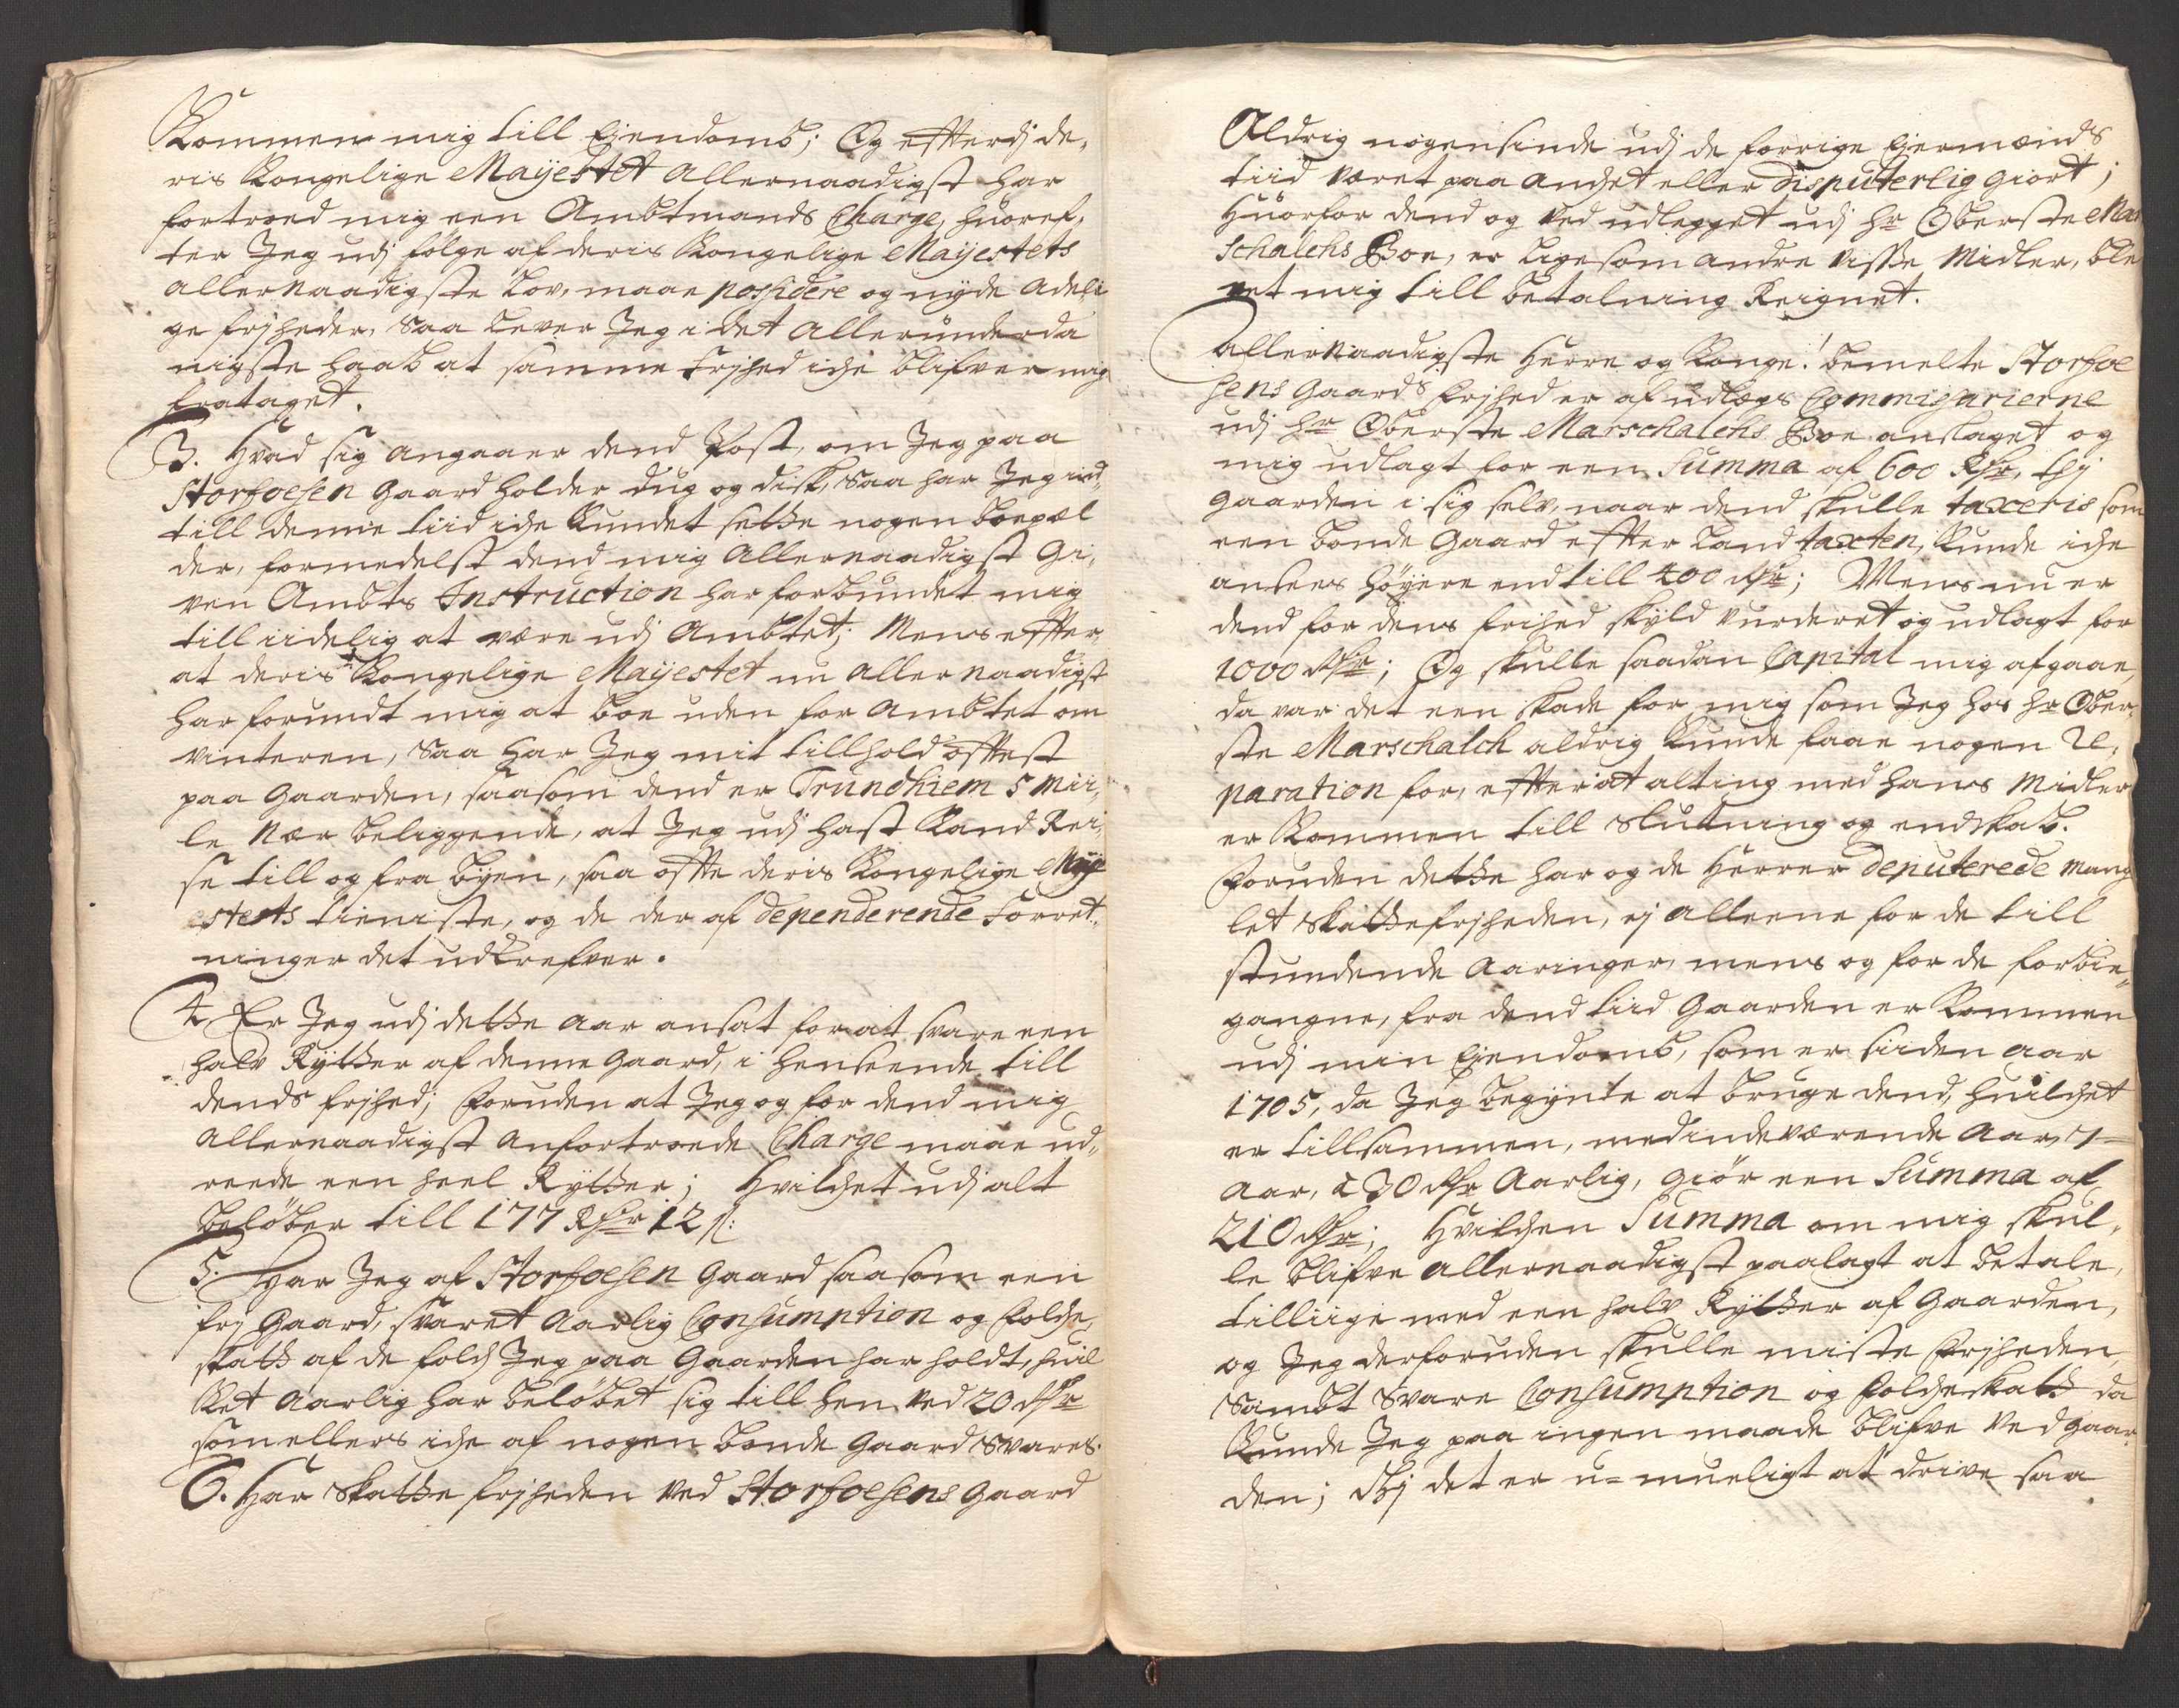 Kommen mig till Eiendomb; Og efterdj de,
ris Kongelige Mayestet Allernaadigst har
fortroed mig een Ambtmands Charge, huoref,
ter Jeg udj følge af deris Kongelige Mayestets
allernaadigste Lov, maae possidere og nyde Adeli
ge frjheder, Saa lever Jeg i det allerunderda
nigste haab at samme Frjhed iche blifver mig
frataget.
3. Hvad sig angaaer dend Post, om Jeg paa
Storfoesen Gaard holder dug og disk, Saa har Jeg ind
till denne tiid iche kundet sette nogen boepæl
der, formedelst dend mig Allernaadigst Gi,
ven Ambts Instruction har forbundet mig
till iidelig at være udj Ambtet; Mens effter,
at deris Kongelige Mayestet nu allernaadigst
har forundt mig at boe uden for Ambtet om
vinteren, Saa har Jeg mit tillhold offtest
paa Gaarden, saasom dend er Trundhiem 5 Mii,
le nær beliggende, at Jeg udj hast kand Rei,
se till og fra byen, saa offte deris Kongelige May
estets tieniste, og de der af dependerende Forret,
ninger det udkrefver.
4. Er Jeg udj dette aar ansat for at svare een
halv Rytter af denne Gaard, i henseende till
dends frjhed; Foruden at Jeg og for dend mig
Allernaadigst Anfortroede Charge maae ud,
reede een heel Rytter; Hvilchet udj alt
beløber till 177 Rdr 12 s:
5. Har Jeg af Storfoesen Gaard saasom een
frj Gaard, svaret Aarlig Consumption og Folche,
skatt af de folch Jeg paa Gaarden har holdt, huil
ket Aarlig har beløbet sig till hen ved 20 Rdr
som ellers iche af nogen bonde Gaard svares.
6. Har Skatte frjheden ved Storfoesens Gaard
Aldrig nogensinde udj de forrige Eiermænds
tiid været paa Anchet eller disputerlig giort;
Huorfor dend og ved udlegget udj Hr Oberste Mar
schalchs Boe, er ligesom andre visse Midler, ble
vet mig till betalning Reignet.
Allernaadigste Herre og Konge! bemelte Storfoe
sens Gaards frjhed er af udlegs Commissarierne
udj Hr Oberste Marschalchs Boe anslaget og
mig udlagt for een Summa af 600 Rdr, thj
Gaarden i sig selv, naar dend skulle taxeris som
een bonde Gaard effter Land taxten, kunde iche
ansees høyere end till 400 Rdr; Mens nu er
dend for dens frihed skyld vurderet og udlagt for
1000 Rdr; Og skulle saadan Capital mig afgaae,
da var det een skade for mig som Jeg hos Hr Ober,
ste Marschalch aldrig kunde faae nogen Re,
paration for, effter at alting med hans Midler
er kommen till Slutning og endskab.
Foruden dette har og de Herrer deputerede mang
let Skattefrjheden, ej alleene for de till
stundende Aaringer, mens og for de forbie,,
gangne, fra dend tiid Gaarden er kommen
udj min Eiendomb, som er siiden aar
1705, da Jeg begynte at bruge dend, huilchet
er tillsammen, med indeværende Aar, 7
Aar, a 30 Rdr Aarlig, giør een Summa af
210 Rdr; Hvilchen Summa om mig skul,
le blifve allernaadigst paalagt at betale,
tilliige med een halv Rytter af Gaarden,
og Jeg derforuden skulle miste Frjheden,
Sambt Svare Consumption og Folcheskatt da
kunde Jeg paa ingen maade blifve ved Gaar,
den; Thj det er u-mueligt at drive saa